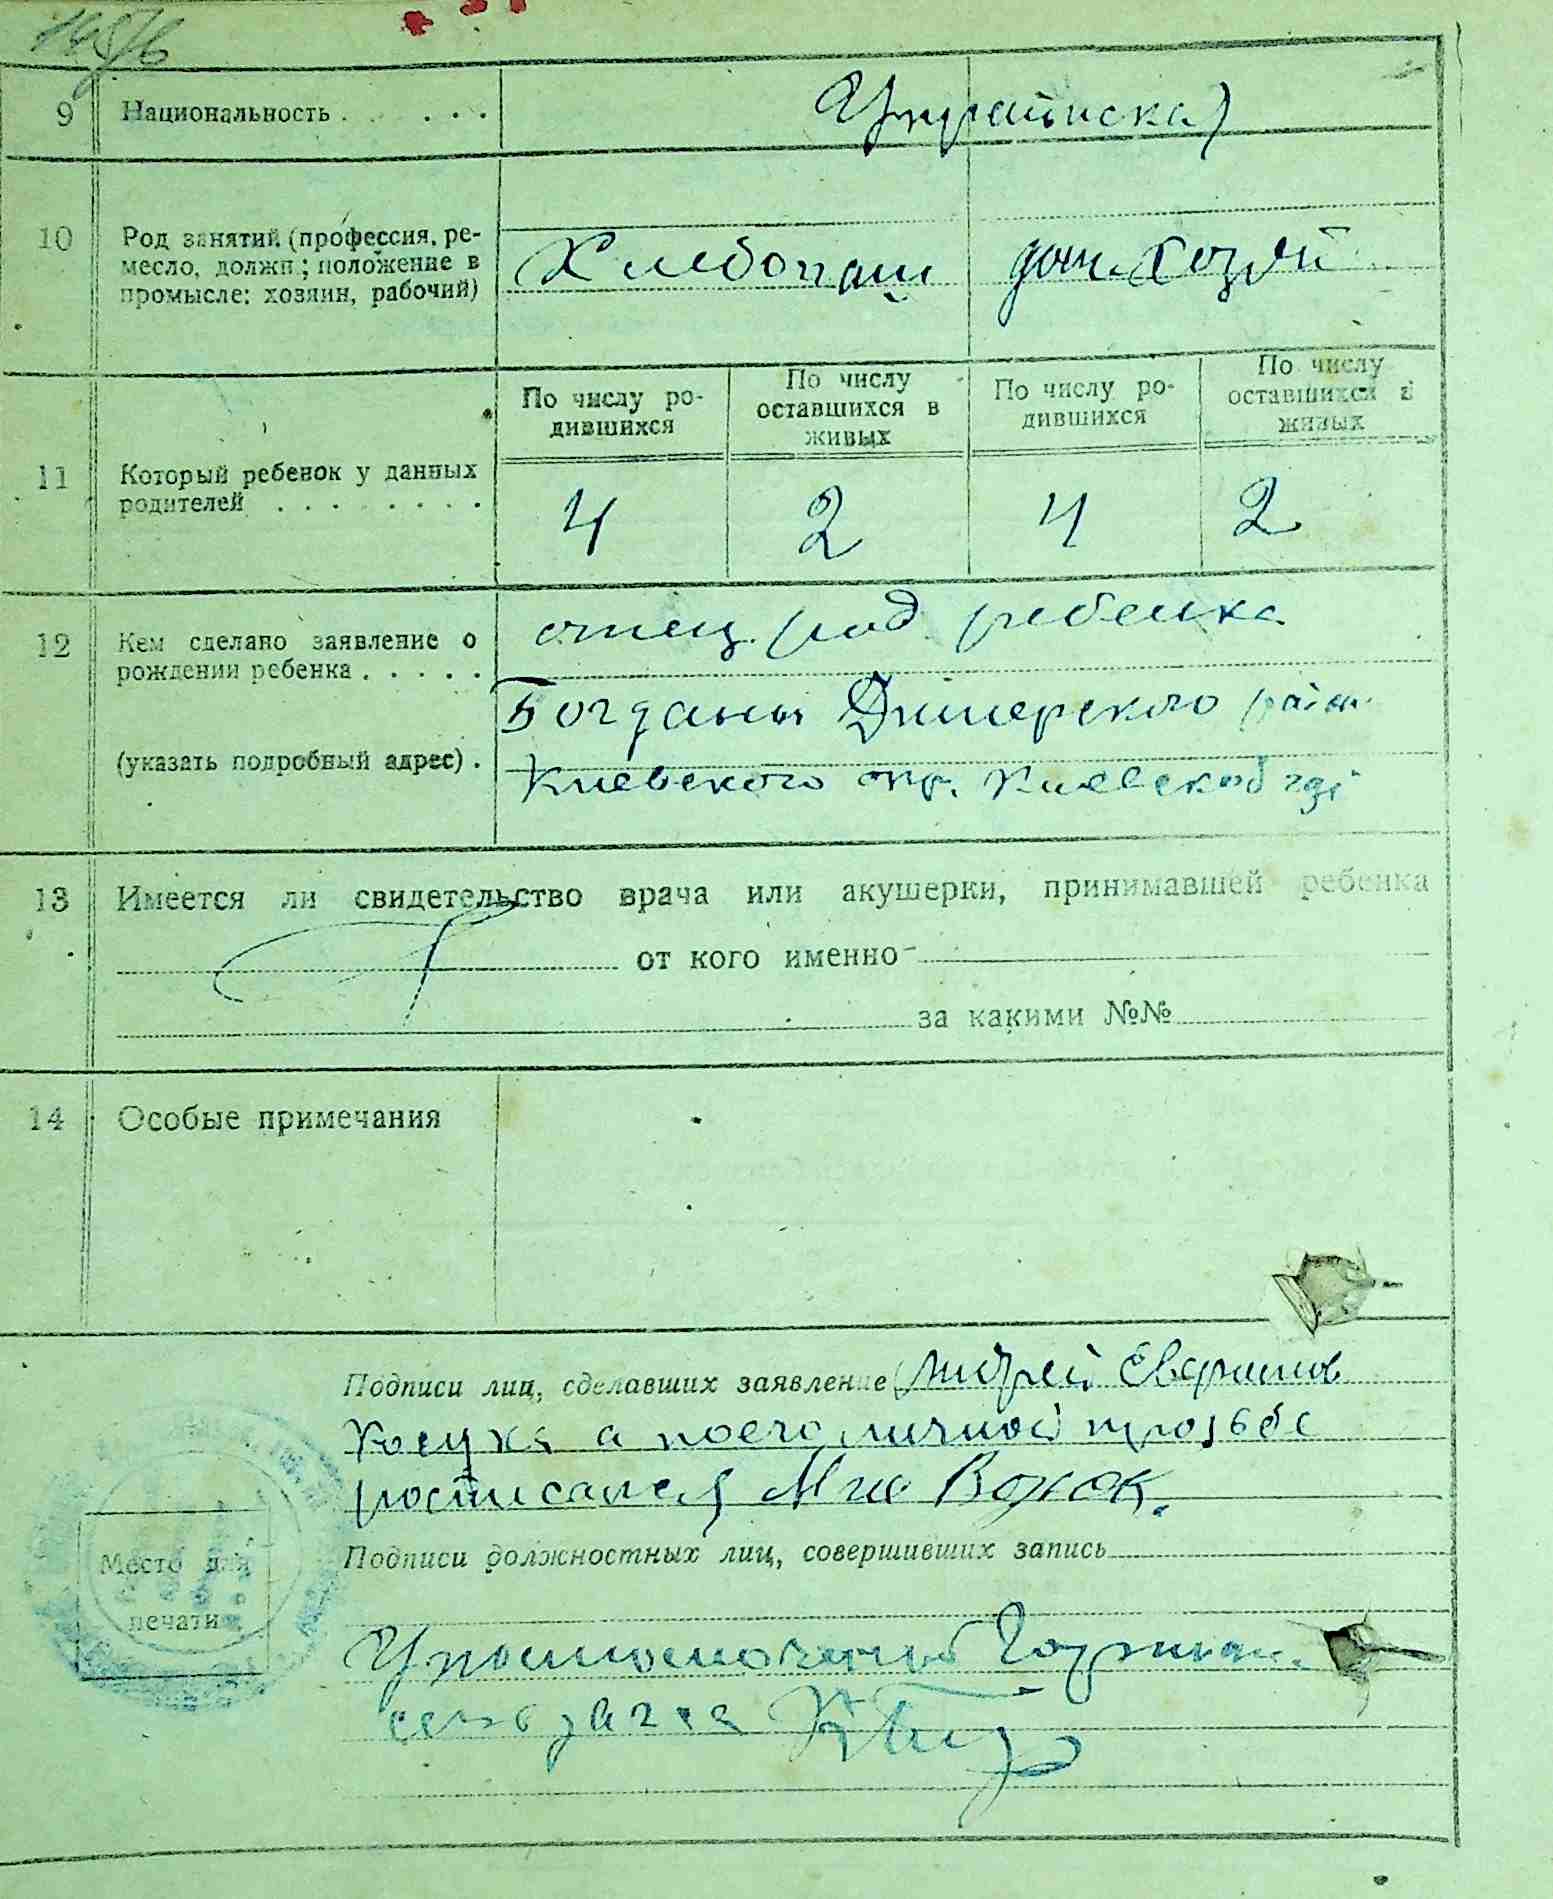 9 Национальность . . . . . . Украинская
10 Род занятий (профессия, ре-
месло, должн.; положение в
промысле: хозяин, рабочий)
Хлебопаш дом. хозяй
По числу ро-
дившихся
По числу
оставшихся в
живых
По числу ро-
дившихся
По числу
оставшихся в
живых
11 Который ребенок у данных
родителей . . . . . . . .
4 2 4 2
12 Кем сделано заявление о
рождении ребенка . . . . .
(указать подробный адрес) .
отец род. ребенка
Богданы Димерского район
Киевского окр. Киевской
13 Имеется ли свидетельство врача или акушерки, принимавшей ребенка
от кого именно
за какими №№
14 Особые примечания
Подписи лиц, сделавших заявление Андрей
а по его личной прозьбе
росписался Вовк.
Подписи должностных лиц, совершивших запись
Место для
печати
Уполномоченный